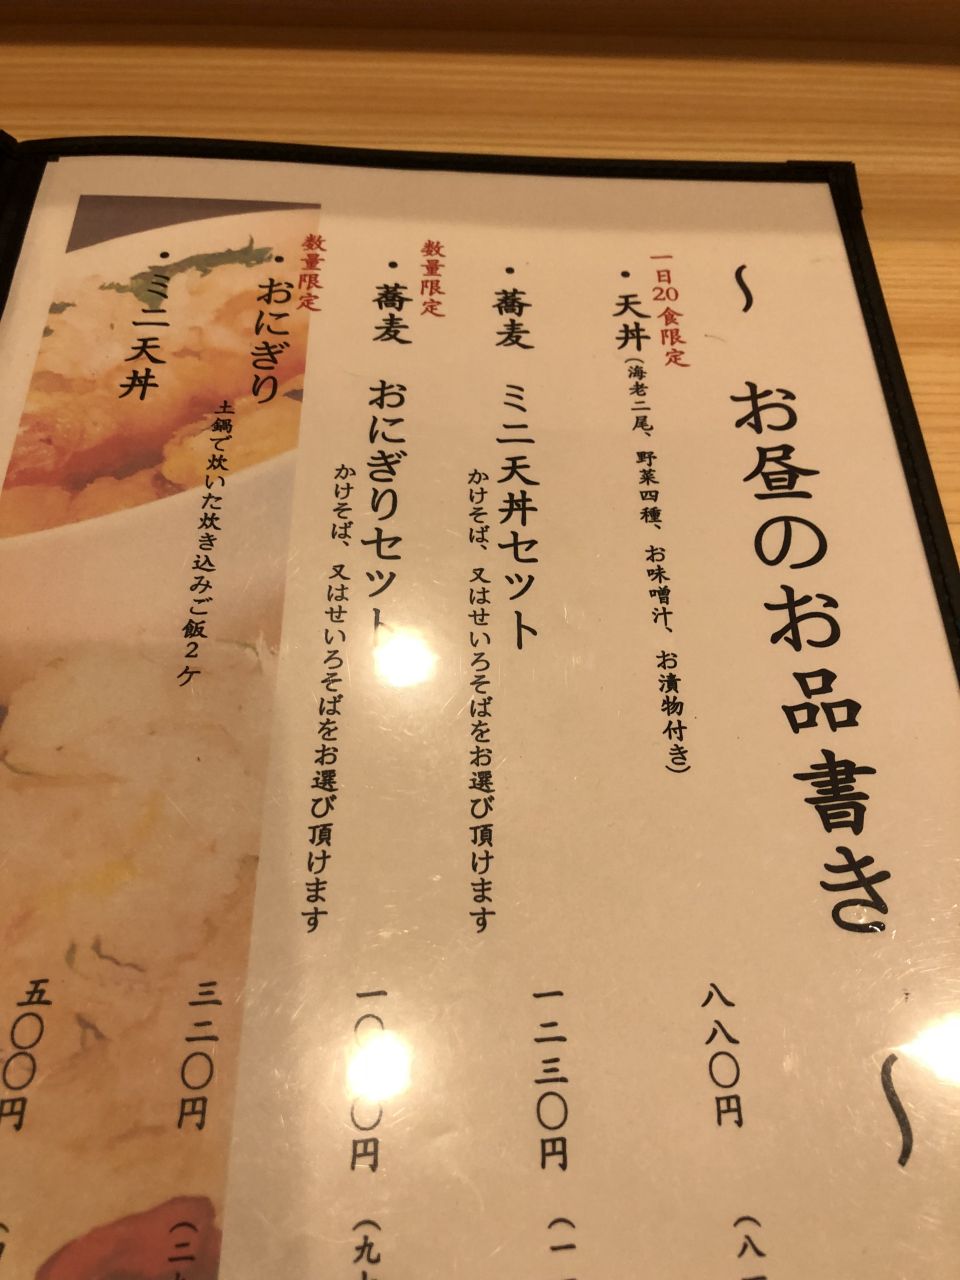 〜 お昼のお品書き 〜
一日20食限定
・天丼(海老二尾、野菜四種、お味噌汁、お漬物付き)
八八〇円
・蕎麦 ミニ天丼セット
かけそば、又はせいろそばをお選び頂けます
一二三〇円
数量限定
・蕎麦 おにぎりセット
かけそば、又はせいろそばをお選び頂けます
円
数量限定
・おにぎり
土鍋で炊いた炊き込みご飯2ケ
三二〇円
・ミニ天丼
五〇〇円